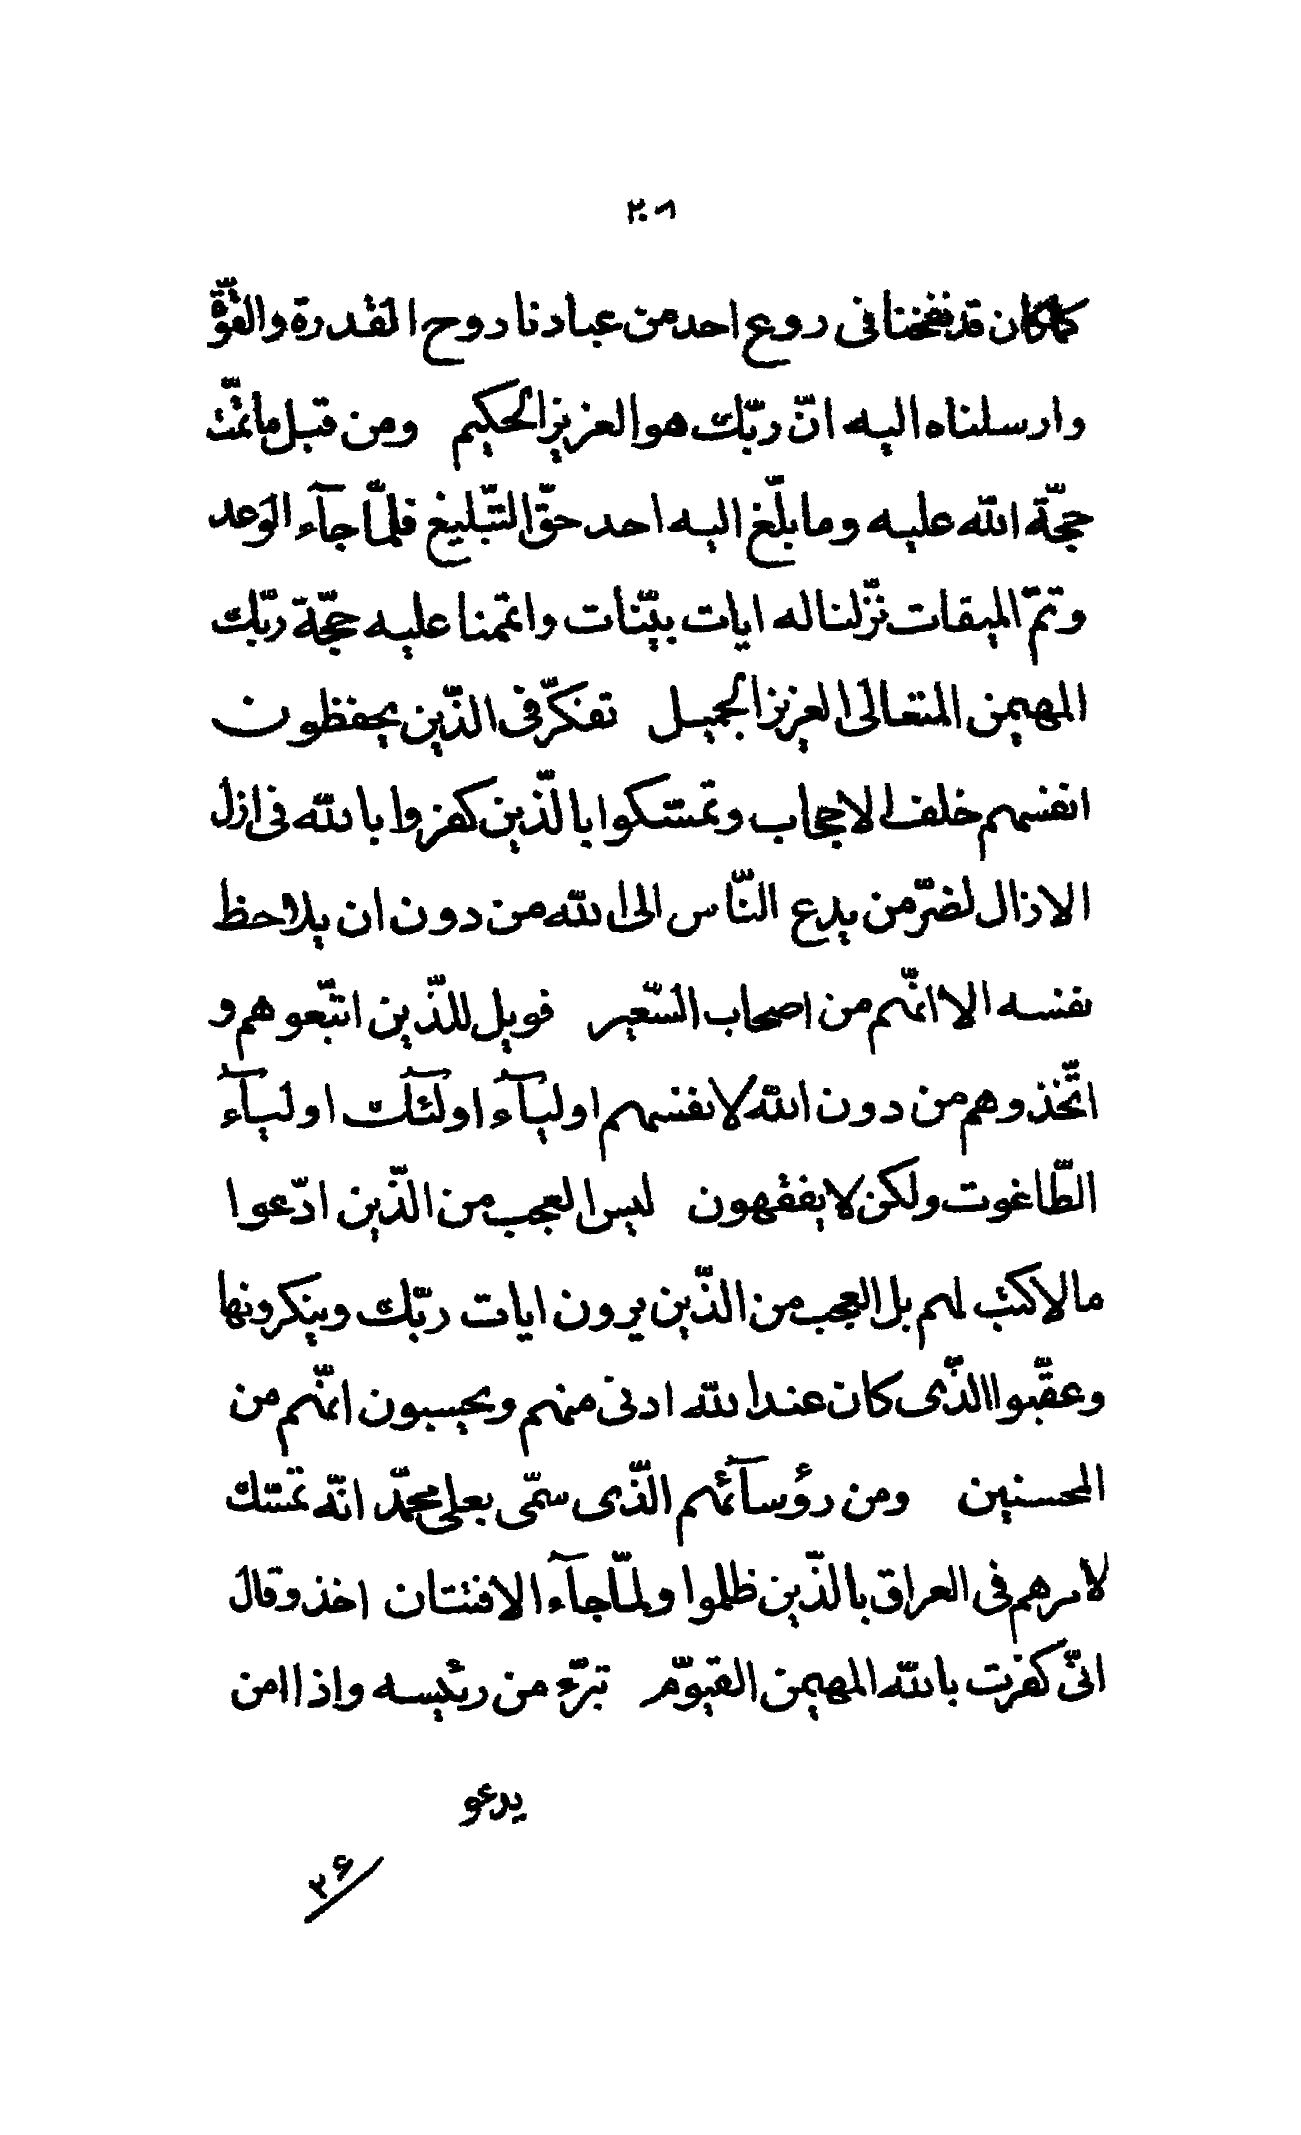 ٢٠٨
كما كان قد نفخنا فی روع احد من عبادنا روح القدرة والقوّة
وارسلناه اليه انّ ربّك هو العزيز الحكيم ومن قبل ما تمّت
حجّة الله عليه وما بلّغ اليه احد حقّ التّبليغ فلمّا جآء الوعد
وتمّ الميقات نزّلنا له ايات بيّنات واتممنا عليه حجّة ربّك
المهيمن المتعالی العزيز الجميل تفكّر فی الّذين يحفظون
انفسهم خلف الاحجاب وتمسّكوا بالّذين كفروا بالله فی ازل
الازال لضرّ من يدع النّاس الی الله من دون ان يلاحظ
نفسه الا انّهم من اصحاب السّعير فويل للّذين اتّبعوهم و
اتّخذوهم من دون الله لانفسهم اوليآء اولئك اوليآء
الطّاغوت ولكن لا يفقهون ليس العجب من الّذين ادّعوا
ما لا كتب لهم بل العجب من الّذين يرون ايات ربّك وينكرونها
وعقّبوا الّذی كان عند الله ادنی منهم ويحسبون انّهم من
المحسنين ومن رؤسآئهم الّذی سمّی بعلی محمّد انّه تمسّك
لامرهم فی العراق بالّذين ظلموا ولمّا جآء الافتتان اخذ وقال
انّی كفرت بالله المهيمن القيّوم تبرّء من رئيسه واذا امن
يدعو
٢۶